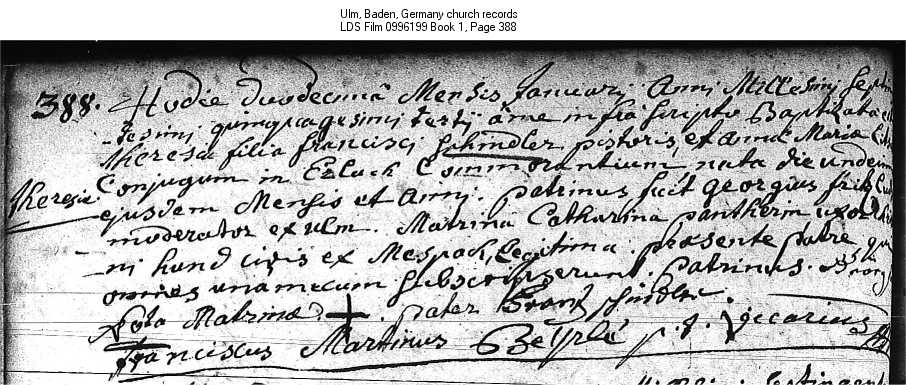 Ulm, Baden, Germany church records
LDS Film 0996199 Book 1, Page 388
388. Hodie duodecimâ Mensis Januarij Anni Millesimi septin
-tesimi quinquagesimi tertij â me infrascripto Baptizata
Theresia filia francisci schindler pistoris, et annæ Mariæ
Theresia
Conjugum in Erlach Commorantium nata die undecima
ejusdem Mensis et Anni. patrinus fuit georgius
moderator ex ulm. Matrina Catharina pantherin uxor
-ni hund civis ex Mespach, legitima. præsente patre, qui
omnes unamecum subscripserunt. patrinus.
Nota Matrinæ + . pater frantz schindler.
franciscus Martinus p. t. vicarius